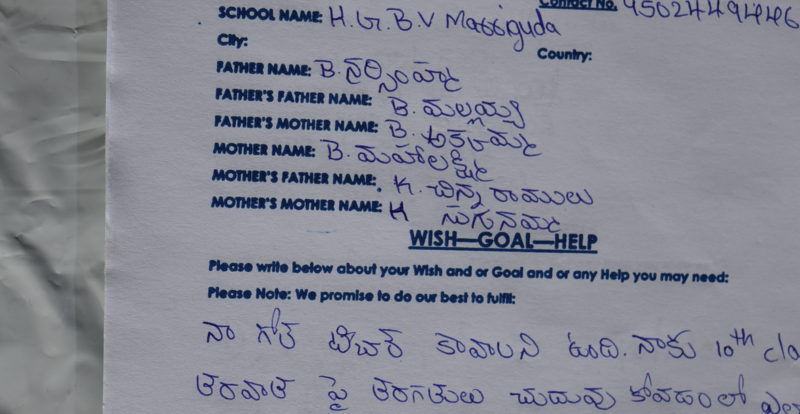 Contact No. 9502449446
SCHOOL NAME: H.G.B.V Massiguda
City:
Country:
FATHER NAME: B. నర్సింహ్మ
FATHER'S FATHER NAME: B. మల్లయ్య
FATHER'S MOTHER NAME: B.
MOTHER NAME: B. మహాలక్ష్మి
MOTHER'S FATHER NAME: K. చిన్న రాములు
MOTHER'S MOTHER NAME: K సుగునమ్మ
WISH—GOAL—HELP
Please write below about your Wish and or Goal and or any Help you may need:
Please Note: We promise to do our best to fulfil:
నా గోల్ టీచర్ కావాలని ఉంది. నాకు 10th cla
తరవాత పై తరగతులు చదువు కోవడంలో